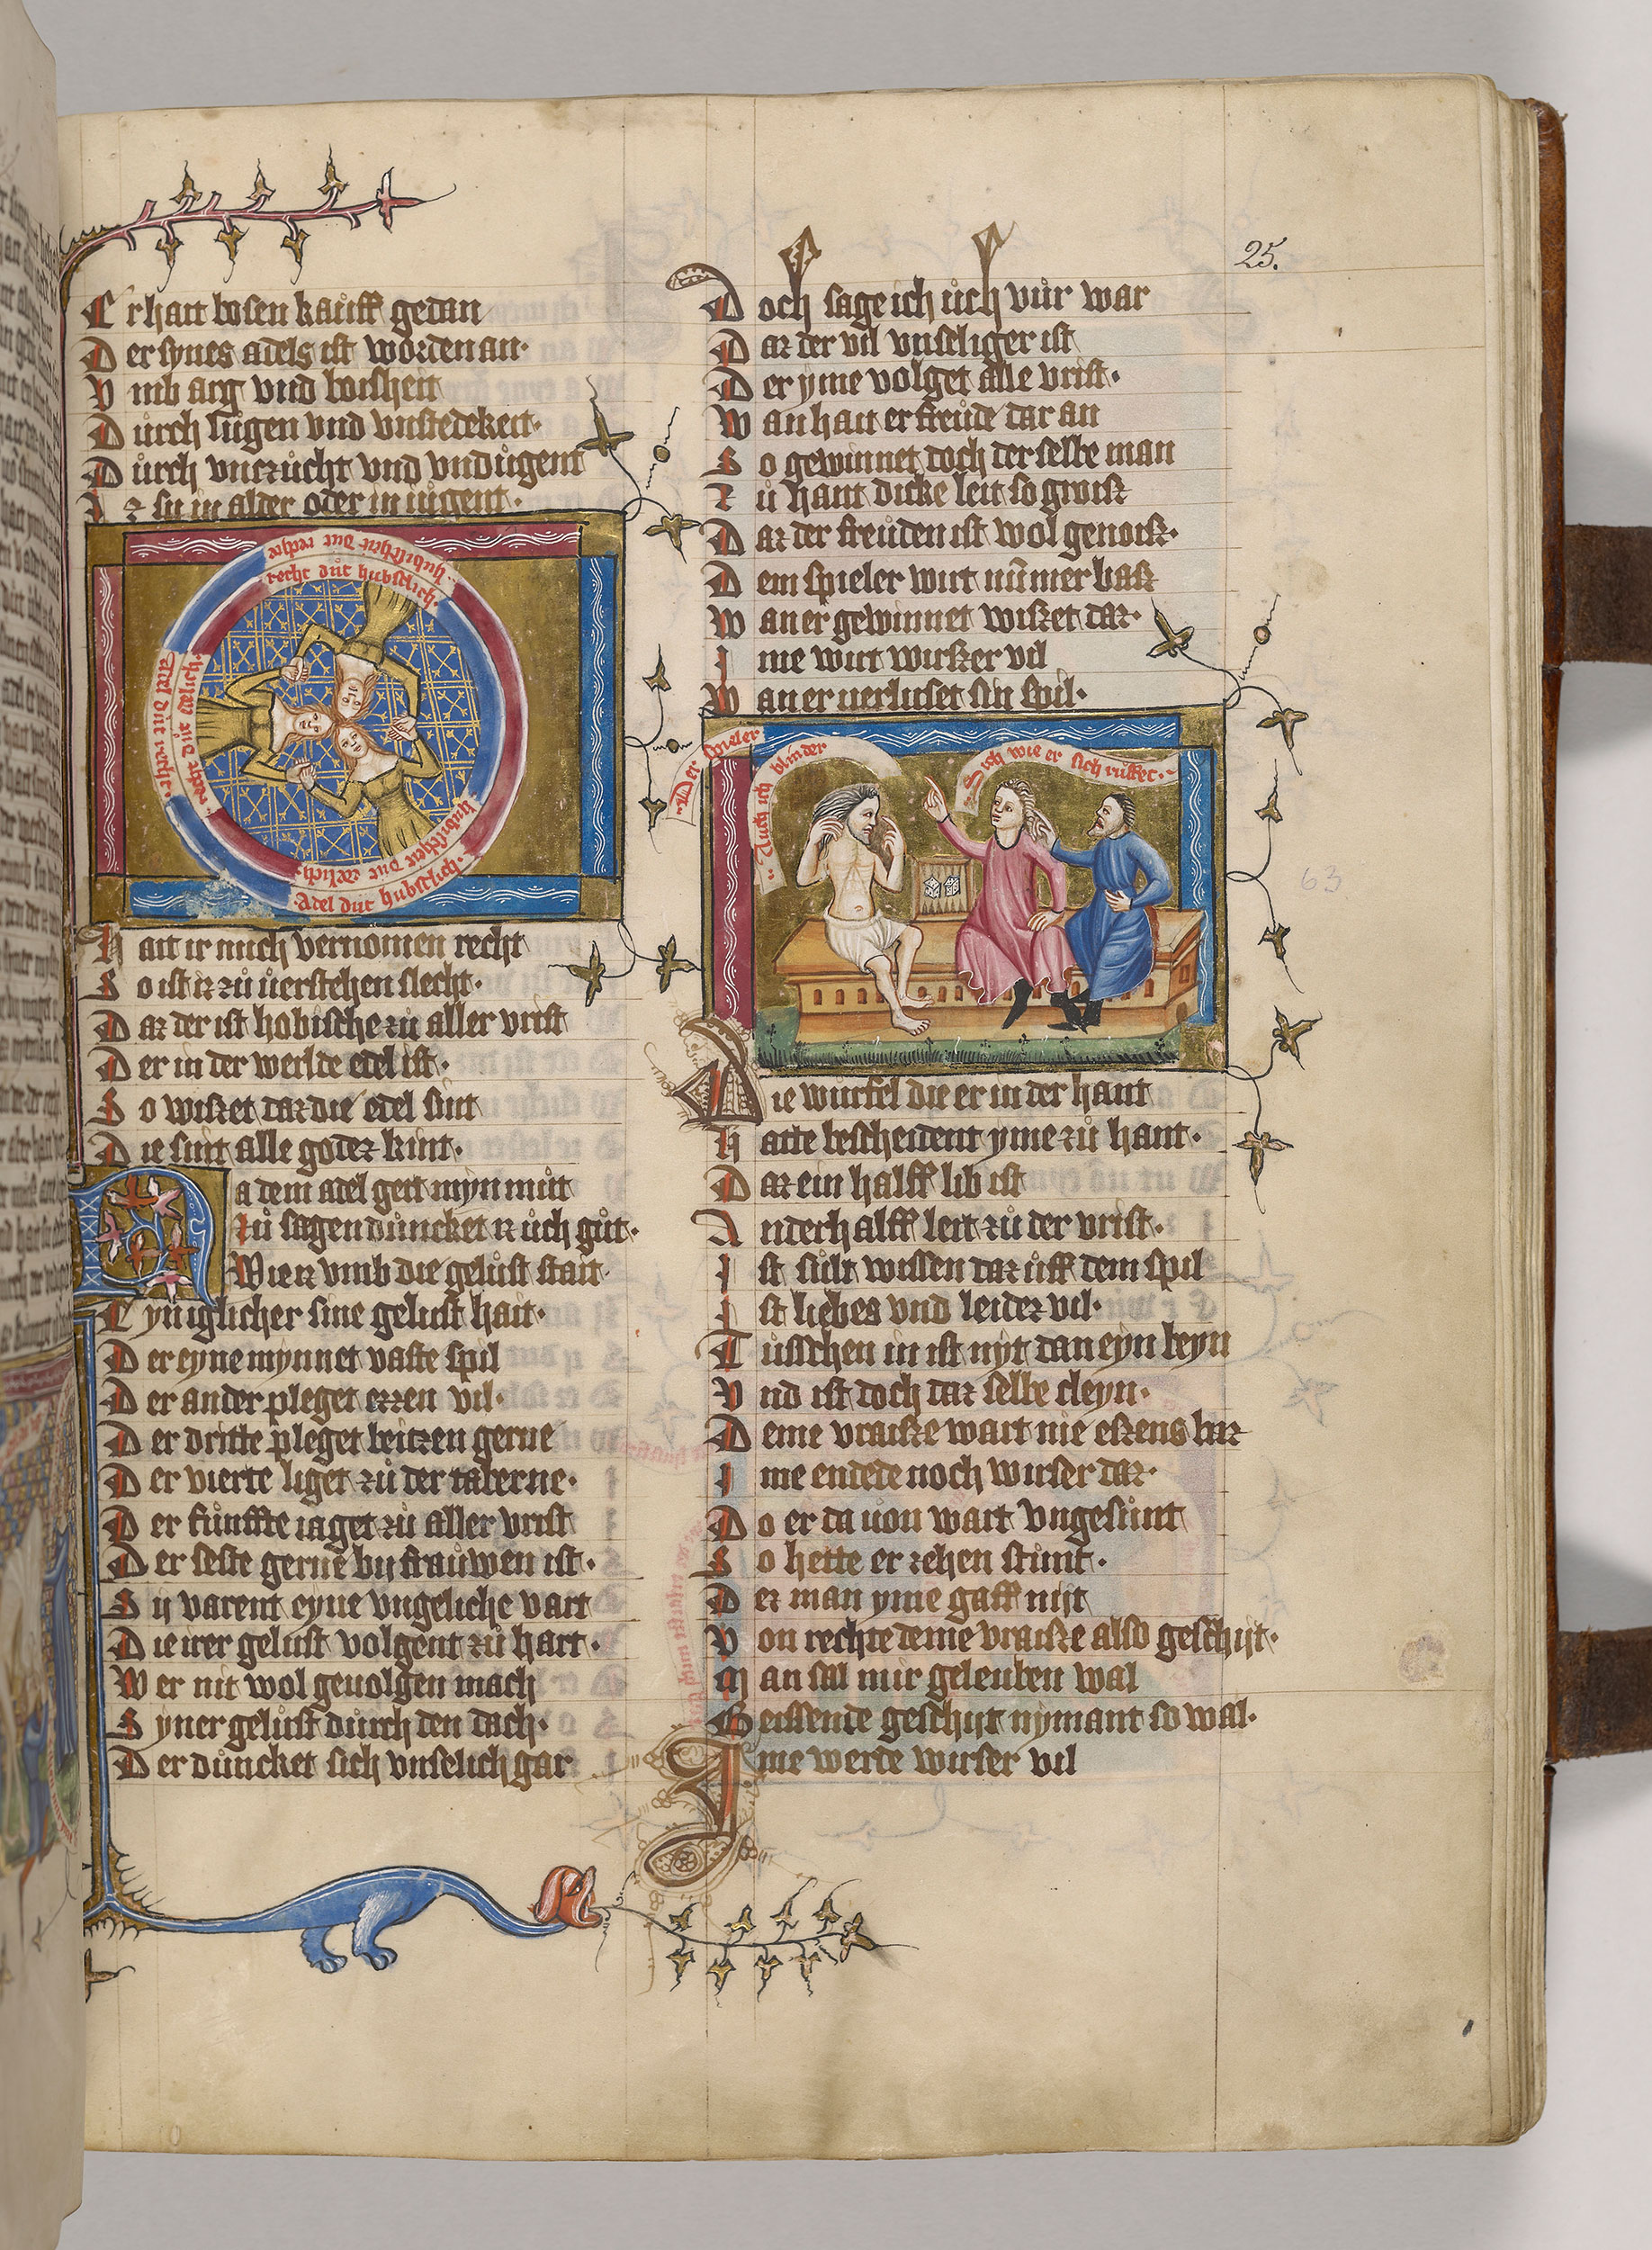 Er hait bosen kaůff gedan
Der synes adels ist worden an·
Vmb arg vnd boisheit
Důrch lůgen vnd vnstedekeit·
Důrch vnzůcht vnd vndůgent
Iz sij in alder oder in iůgent·
hubischeit důt rechte
recht důt hubschlich·
adel důt rechte·
recht důt edelich·
hubischeit důt edelich·
Adel důt hubschlich·
Hait ir mich vernomen recht
So ist iz zů uerstehen slecht·
Daz der ist hobische zů aller vrist
Der in der werlde edel ist·
So wiszet daz die edel sint
Die sint alle godez kint·
Na dem adel gert myn můt
Zů sagen důncket iz ůch gůt·
Wie iz vmb die gelůst stait
Eyn iglicher sine gelust hait·
Der eyne mynnet vaste spil
Der ander pleget ezzen vil·
Der dritte pleget beitzen gerne
Der vierte liget zů der taberne·
Der fůnffte iaget zů aller vrist
Der seste gerne bij fraůwen ist·
Sij varent eyne vngeliche vart
Die irer gelust volgent zů hart·
Wer nit wol geuolgen mach
Syner gelůst důrch den dach·
Der důncket sich vnselich gar
25.
Doch sage ich ůch vůr war
Daz der vil vnseliger ist
Der yme volget alle vrist·
Wan hait er freůde dar an
So gewinnet doch der selbe man
Zů hant dicke leit so groisz
Daz der freůden ist wol genoisz·
Dem spieler wirt nům̄er basz
Wan er gewinnet wiszet daz·
Ime wirt wirszer vil
Wan er uerluset sin spil·
Der spieler
Auch ich blinder
Sich wie er sich ruffet·
63
Die wurfel die er in der hant
Hatte bescheident yme zů hant·
Daz ein halff lib ist
Anderhalff leit zů der vrist·
Ist sůlt wissen daz ůff dem spil
Ist liebes vnd leidez vil·
Tůsschen in ist nyt dan eyn beyn
Vnd ist doch daz selbe cleyn·
Deme vraisze wart nie eszens baz
Ime endede noch wirser daz·
Do er da uon wart vngesůnt
So hette er zehen stůnt·
Dez man yme gaff nijt
Von rechte deme vraisze also geschijt·
Man sal mir geleuben wal
Beissende geschijt nymant so wal·
Ime werde wirser vil